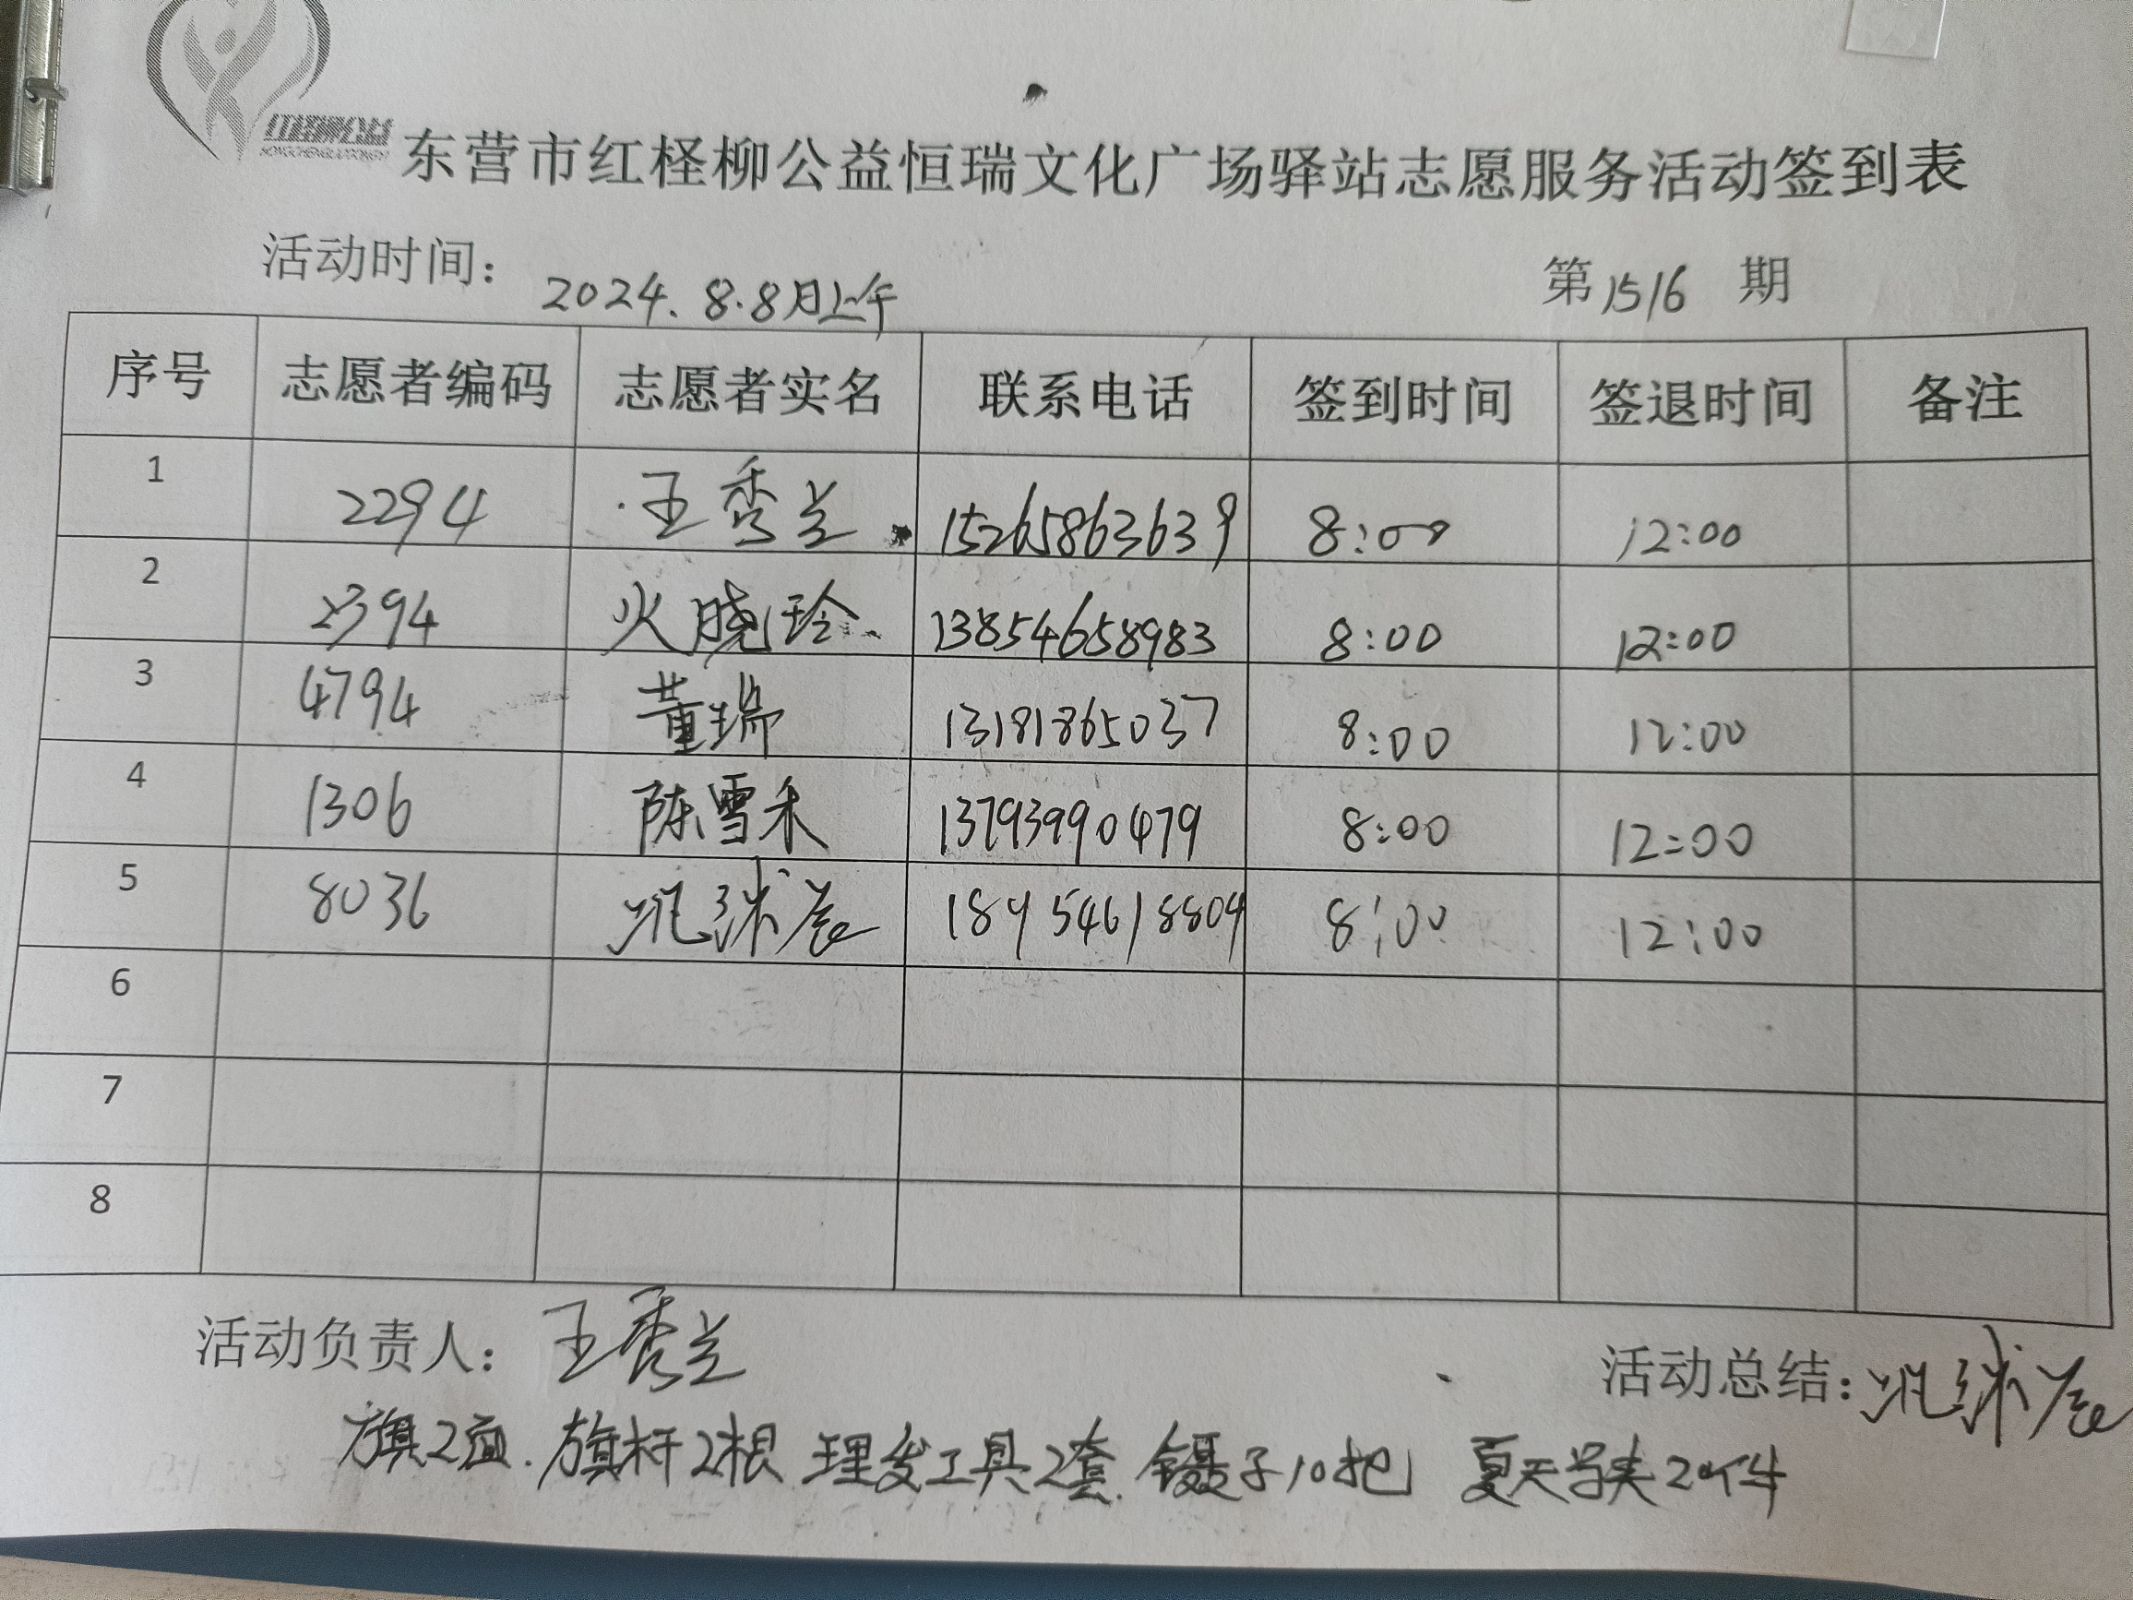 红柽柳公益
东营市红柽柳公益恒瑞文化广场驿站志愿服务活动签到表
活动时间: 2024.8.8月上午 第1516期
序号 志愿者编码 志愿者实名 联系电话 签到时间 签退时间 备注
1 2294 王秀兰 15265863639 8:00 12:00
2 2394 火晓玲 13854658983 8:00 12:00
3 4794 董瑞 13181865037 8:00 12:00
4 1306 陈雪禾 13793990479 8:00 12:00
5 8036 8:00 12:00
6
7
8
活动负责人: 王秀兰 活动总结:
旗2面.旗杆2根 理发工具2套.镊子10把 夏天马夹20件